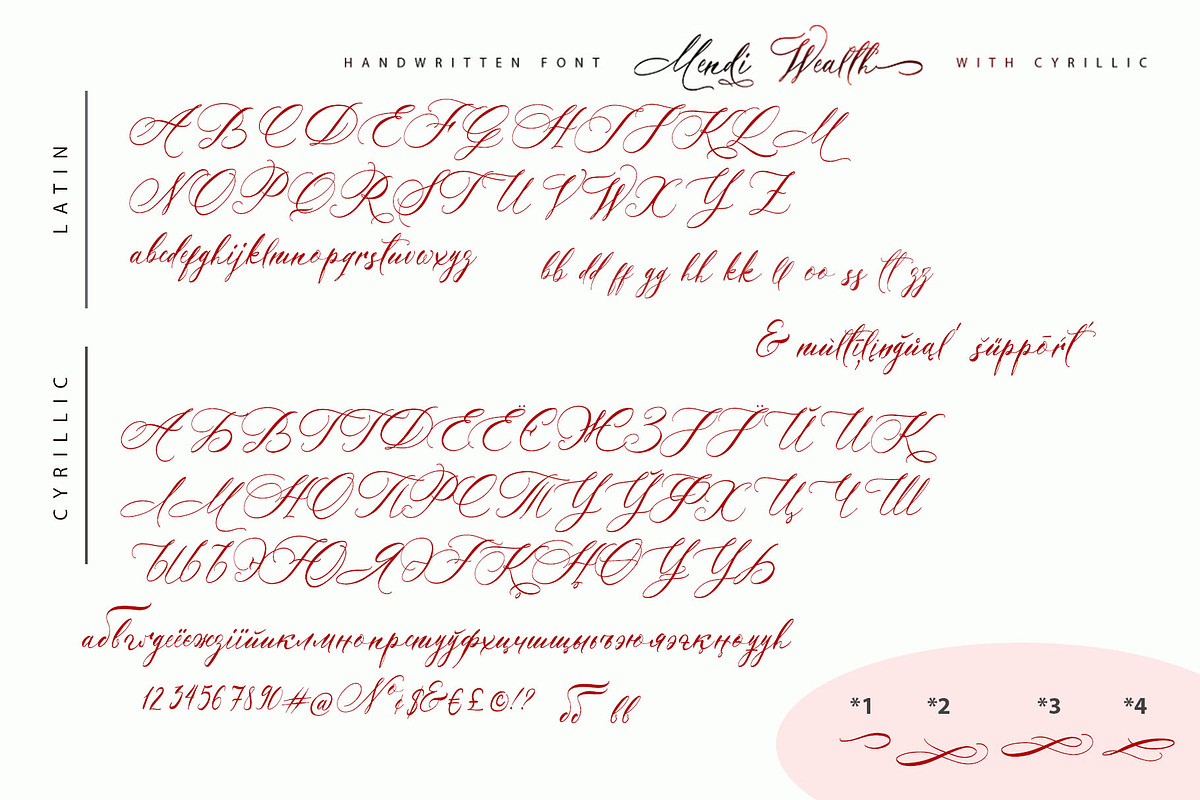 HANDWRITTEN FONT Mendi Wealth WITH CYRILLIC
LATIN
ABCDEFGHIJKLM
NOPQRSTUVWXYZ
abcdefghijklmnopqrstuvwxyz bb dd ff gg hh kk ll oo ss tt zz
& mùltįlingŭąl šüppōŕt
CYRILLIC
АБВГҐДЕЁЄЖЗІЇЙИК
ЛМНОПРСТУЎФХЦЧШ
ЪЫЬЭЮЯӘҒҚҢӨҰҮҺ
абвгґдеёєжзіїйиклмнопрстуўфхцчшщыьъэюяәғқңөұүһ
1234567890#@№¢$&€£©!? бб вв
*1 *2 *3 *4